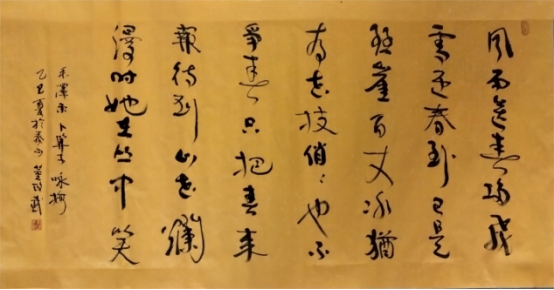 風雨送春歸飛
雪迎春到已是
懸崖百丈冰猶
有花枝俏〻也不
爭春只把春來
報待到山花爛
漫时她在丛中笑
毛澤東 卜算子 咏梅
乙巳夏於泰山